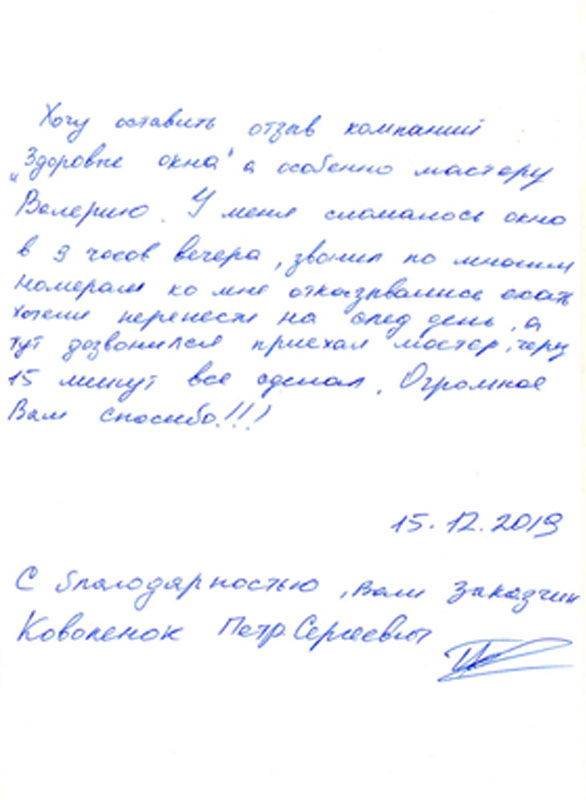 Хочу оставить отзыв компании
"Здоровые окна" а особенно мастеру
Валерию. У меня сломалось окно
в 9 часов вечера, звонил по многим
номерам ко мне отказывались ехать
хотели перенести на след день, а
тут дозвонился приехал мастер, через
15 минут все сделал. Огромное
Вам спасибо!!!
15.12.2019
С благодарностью, Ваш заказчик
Коваленок Петр Сергеевич